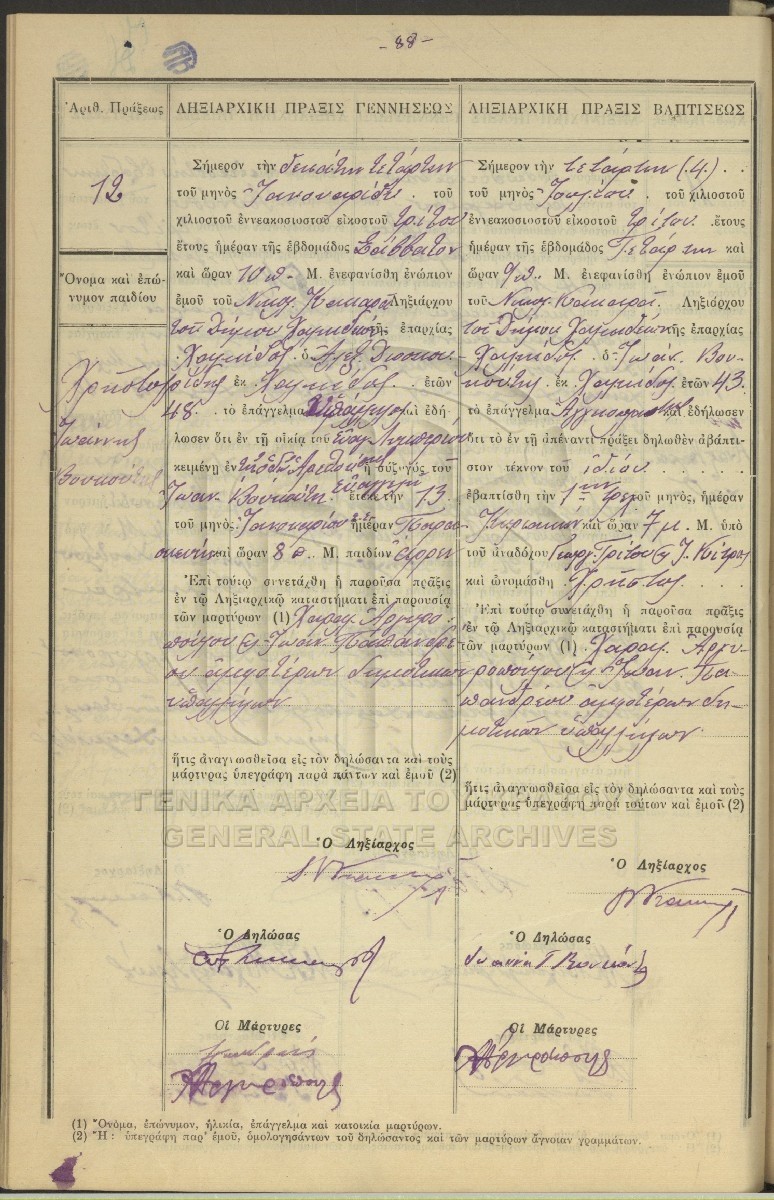 - 88 -
Ἀριθ. Πράξεως
12
Ὄνομα καὶ ἐπώνυμον παιδίου
Χρῆστος
Ἰωάννης
Βουκούτης
ΛΗΞΙΑΡΧΙΚΗ ΠΡΑΞΙΣ ΓΕΝΝΗΣΕΩΣ
Σήμερον τὴν δεκάτην τετάρτην
τοῦ μηνὸς Ἰανουαρίου . τοῦ
χιλιοστοῦ ἐννεακοσιοστοῦ εἰκοστοῦ τρίτου
ἔτους ἡμέραν τῆς ἑβδομάδος Σάββατον
καὶ ὥραν 10 π. Μ. ἐνεφανίσθη ἐνώπιον
ἐμοῦ τοῦ Νικολ. Ληξιάρχου
τοῦ Δήμου Χαλκιδέων τῆς ἐπαρχίας
Χαλκίδος ὁ Ἀλεξ.
ἐκ Χαλκίδος . ἐτῶν
48 . τὸ ἐπάγγελμα καὶ ἐδή-
λωσεν ὅτι ἐν τῇ οἰκίᾳ τοῦ
κειμένῃ ἐν ὁδῷ Ἀρεθούσης ἡ σύζυγός τοῦ
Ἰωαν. Βουκούτη ἔτεκε τὴν 13
τοῦ μηνὸς Ἰανουαρίου ἡμέραν Παρα-
σκευὴν καὶ ὥραν 8 π. Μ. παιδίον ἄρρεν
Ἐπὶ τούτῳ συνετάχθη ἡ παροῦσα πρᾶξις
ἐν τῷ Ληξιαρχικῷ καταστήματι ἐπὶ παρουσίᾳ
τῶν μαρτύρων (1) Χαραλ. Ἀργυρο-
πούλου & Ἰωαν. Παπανδρέ-
ου ἀμφοτέρων δημοτικῶν
ὑπαλλήλων
ἥτις ἀναγνωσθεῖσα εἰς τὸν δηλώσαντα καὶ τοὺς
μάρτυρας ὑπεγράφη παρὰ πάντων καὶ ἐμοῦ (2)
Ὁ Ληξίαρχος
Ὁ Δηλώσας
Οἱ Μάρτυρες
ΛΗΞΙΑΡΧΙΚΗ ΠΡΑΞΙΣ ΒΑΠΤΙΣΕΩΣ
Σήμερον τὴν τετάρτην (4) . .
τοῦ μηνὸς Ἰουλίου . τοῦ χιλιοστοῦ
ἐννεακοσιοστοῦ εἰκοστοῦ τρίτου . ἔτους
ἡμέραν τῆς ἑβδομάδος Τετάρτην καὶ
ὥραν 9 π. Μ. ἐνεφανίσθη ἐνώπιον ἐμοῦ
τοῦ Νικολ. Ληξιάρχου
τοῦ Δήμου Χαλκιδέων τῆς ἐπαρχίας
Χαλκίδος ὁ Ἰωάν. Βου-
κούτης ἐκ Χαλκίδος ἐτῶν 43
τὸ ἐπάγγελμα καὶ ἐδήλωσεν
ὅτι τὸ ἐν τῇ ἀπέναντι πράξει δηλωθὲν ἀβάπτι-
στον τέκνον τοῦ ἰδίου . . . . .
ἐβαπτίσθη τὴν 1ην τρέχ. τοῦ μηνός, ἡμέραν
Κυριακὴν καὶ ὥραν 7 μ. Μ. ὑπὸ
τοῦ ἀναδόχου Γεωργ.
καὶ ὠνομάσθη Χρῆστος . . . .
Ἐπὶ τούτῳ συνετάχθη ἡ παροῦσα πρᾶξις
ἐν τῷ Ληξιαρχικῷ καταστήματι ἐπὶ παρουσίᾳ
τῶν μαρτύρων (1) Χαραλ. Ἀργυ-
ροπούλου & Ἰωαν. Πα-
πανδρέου ἀμφοτέρων δη-
μοτικῶν ὑπαλλήλων
ἥτις ἀναγνωσθεῖσα εἰς τὸν δηλώσαντα καὶ τοὺς
μάρτυρας ὑπεγράφη παρὰ τούτων καὶ ἐμοῦ (2)
Ὁ Ληξίαρχος
Ὁ Δηλώσας
Οἱ Μάρτυρες
ΓΕΝΙΚΑ ΑΡΧΕΙΑ ΤΟΥ
GENERAL STATE ARCHIVES
(1) Ὄνομα, ἐπώνυμον, ἡλικία, ἐπάγγελμα καὶ κατοικία μαρτύρων.
(2) Ἢ : ὑπεγράφη παρ' ἐμοῦ, ὁμολογησάντων τοῦ δηλώσαντος καὶ τῶν μαρτύρων ἄγνοιαν γραμμάτων.